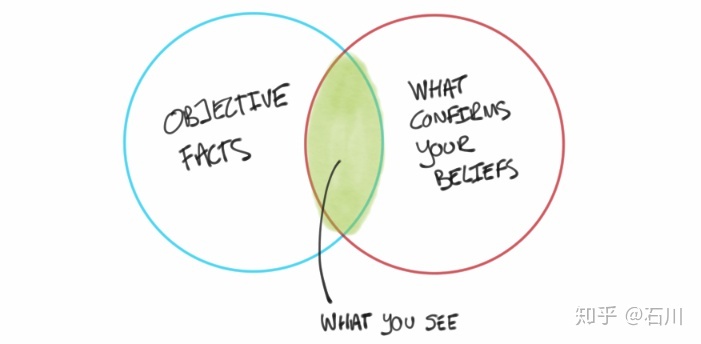 OBJECTIVE
FACTS
WHAT
CONFIRMS
YOUR
BELIEFS
WHAT YOU SEE
知乎 @石川